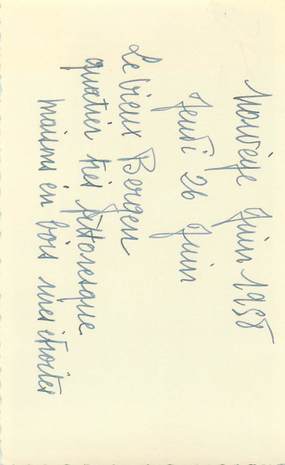 Norvège Juin 1958
Jeudi 26 Juin
Le Vieux Bergen
quartier très pittoresque
maisons en bois rues étroites